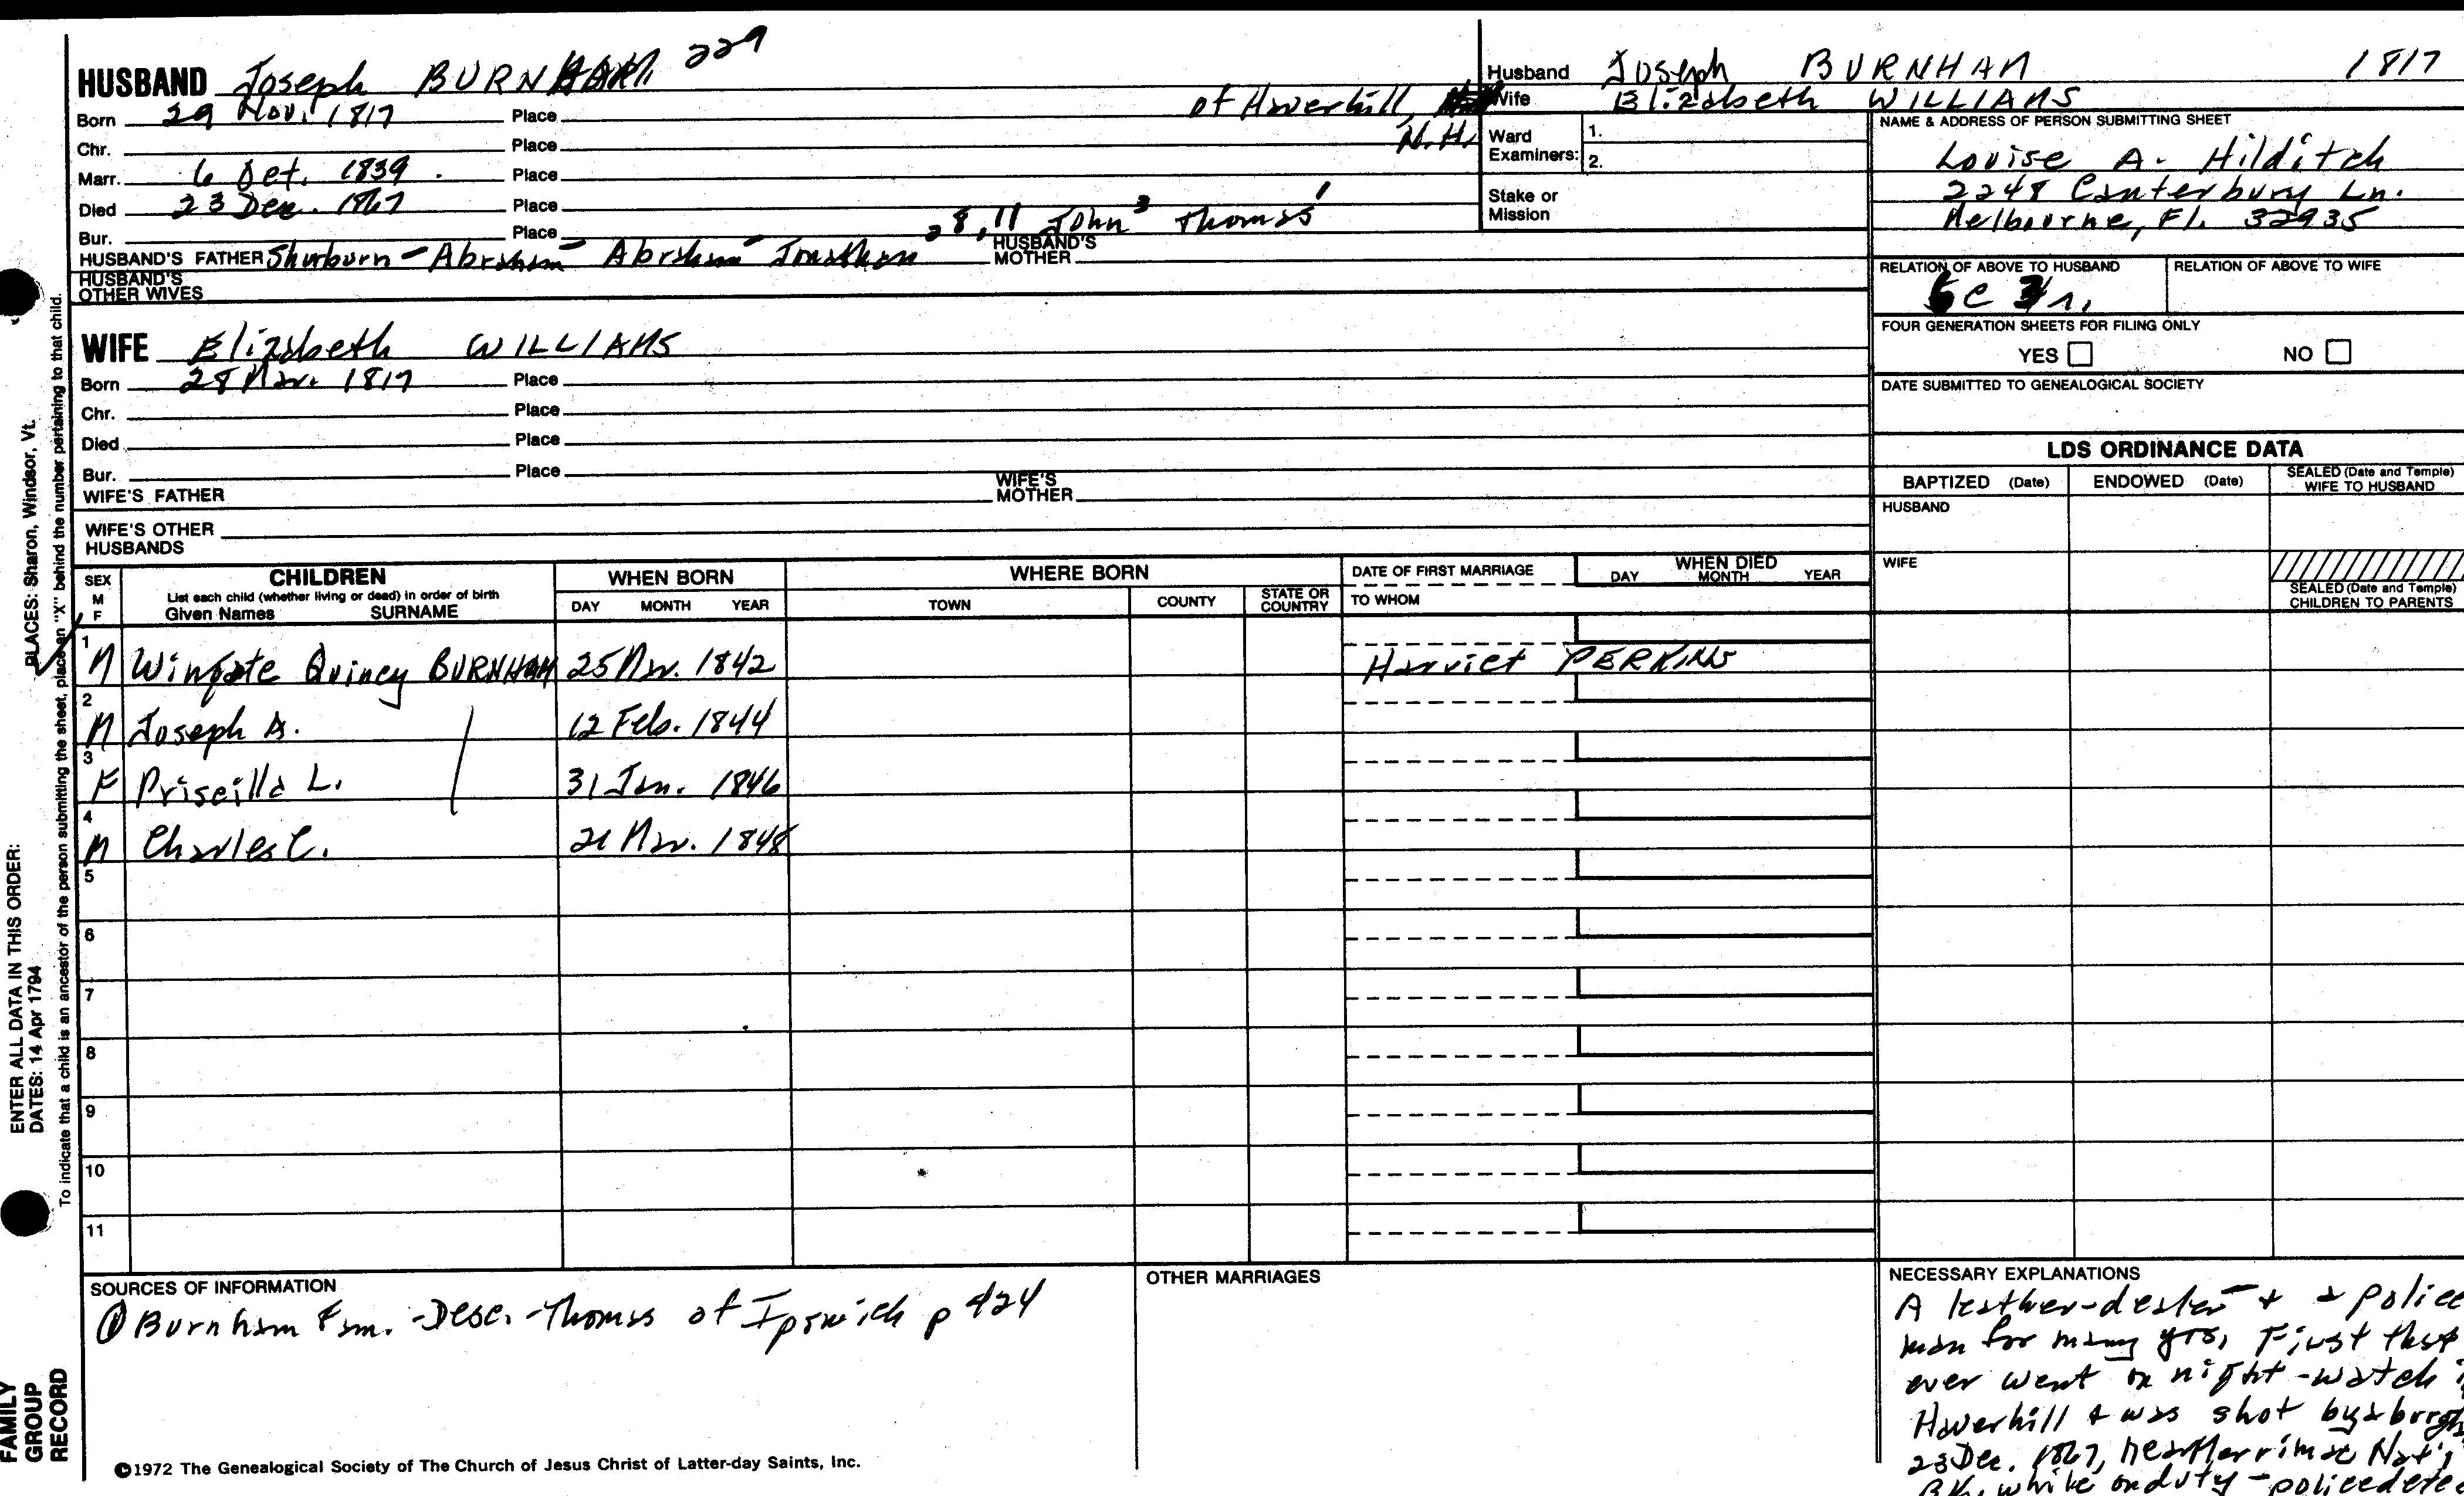 HUSBAND Joseph BURNHAM 229
Born 29 Nov. 1817 Place of Haverhill,
N.H.
Chr. Place
Marr. 6 Oct. 1839. Place
Died 23 Dec. 1867 Place
Bur. Place
28,11 John³ Thomas¹
HUSBAND'S FATHER Shurburn - Abraham Abraham Jonathan HUSBAND'S MOTHER
HUSBAND'S OTHER WIVES
WIFE Elizabeth WILLIAMS
Born 28 Mar. 1817 Place
Chr. Place
Died Place
Bur. Place
WIFE'S FATHER WIFE'S MOTHER
WIFE'S OTHER HUSBANDS
Husband Joseph BURNHAM 1817
Wife Elizabeth WILLIAMS
Ward Examiners: 1.
2.
Stake or Mission
NAME & ADDRESS OF PERSON SUBMITTING SHEET
Louise A. Hilditch
2248 Canterbury Ln.
Melbourne, Fl. 32935
RELATION OF ABOVE TO HUSBAND RELATION OF ABOVE TO WIFE
FOUR GENERATION SHEETS FOR FILING ONLY
YES NO
DATE SUBMITTED TO GENEALOGICAL SOCIETY
LDS ORDINANCE DATA
BAPTIZED (Date) ENDOWED (Date) SEALED (Date and Temple) WIFE TO HUSBAND
HUSBAND
WIFE
SEALED (Date and Temple) CHILDREN TO PARENTS
SEX M F
CHILDREN
List each child (whether living or dead) in order of birth
Given Names SURNAME
WHEN BORN
DAY MONTH YEAR
WHERE BORN
TOWN COUNTY STATE OR COUNTRY
DATE OF FIRST MARRIAGE
TO WHOM
WHEN DIED
DAY MONTH YEAR
1 M Wingate Quincy BURNHAM 25 Mar. 1842 Harriet PERKINS
2 M Joseph A. 12 Feb. 1844
3 F Priscilla L. 31 Jan. 1846
4 M Charles C. 21 Mar. 1848
5
6
7
8
9
10
11
SOURCES OF INFORMATION
① Burnham Fam. - Desc. - Thomas of Ipswich p 424
OTHER MARRIAGES
NECESSARY EXPLANATIONS
A leather-dealer + a police
man for many yrs. First that
ever went on night-watch
Haverhill + was shot by a burg
23 Dec. 1867, near Merrimac Nat'
Bk. while on duty - police dete
©1972 The Genealogical Society of The Church of Jesus Christ of Latter-day Saints, Inc.
PLACES: Sharon, Windsor, Vt.
ENTER ALL DATA IN THIS ORDER:
DATES: 14 Apr 1794
To indicate that a child is an ancestor of the person submitting the sheet, place an "X" behind the number pertaining to that child.
FAMILY
GROUP
RECORD